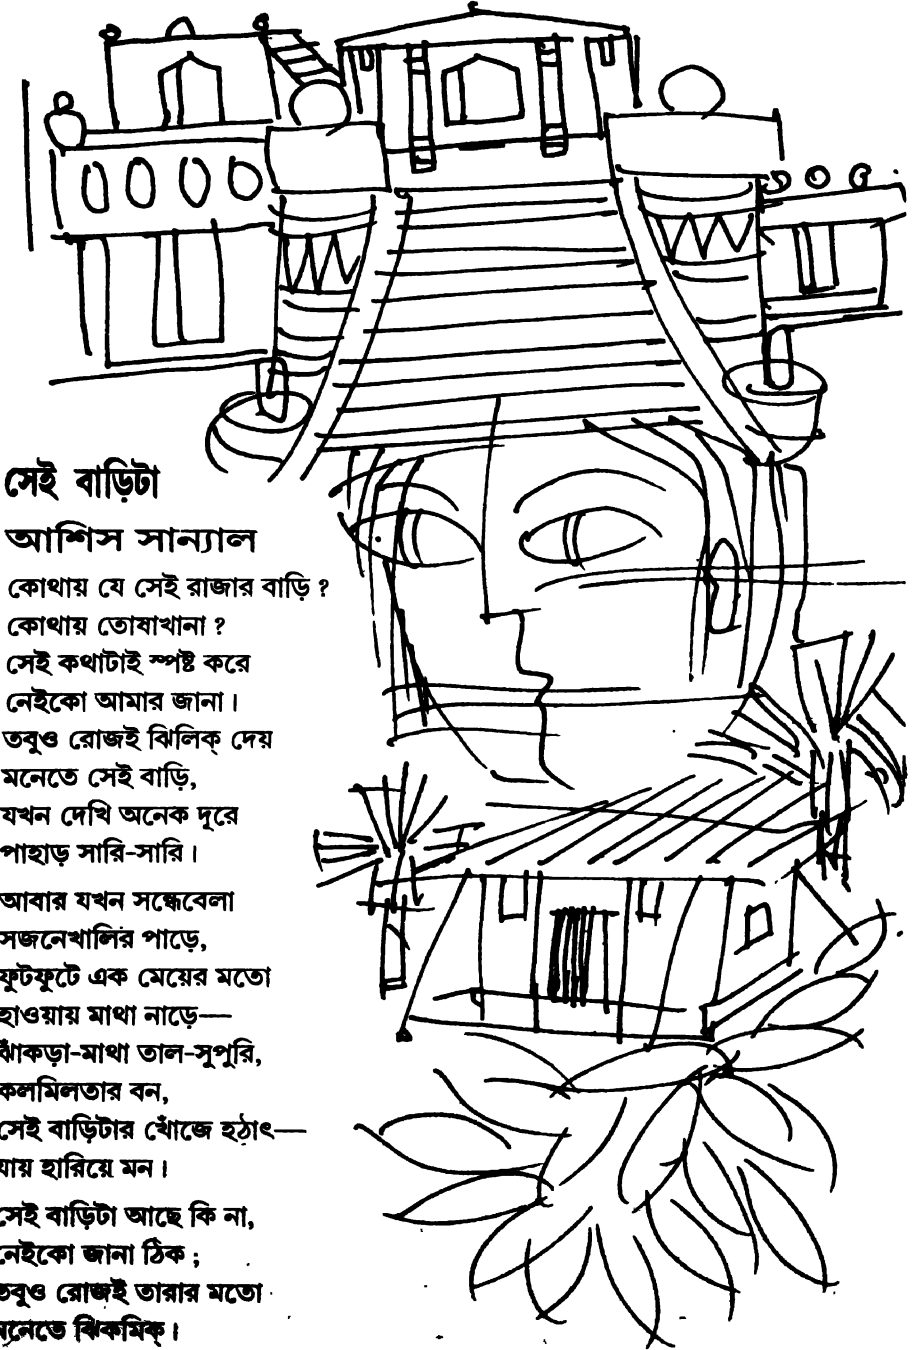 সেই বাড়িটা
আশিস সান্যাল
কোথায় যে সেই রাজার বাড়ি ?
কোথায় তোষাখানা ?
সেই কথাটাই স্পষ্ট করে
নেইকো আমার জানা ।
তবুও রোজই ঝিলিক্ দেয়
মনেতে সেই বাড়ি,
যখন দেখি অনেক দূরে
পাহাড় সারি-সারি ।
আবার যখন সন্ধেবেলা
সজনেখালির পাড়ে,
ফুটফুটে এক মেয়ের মতো
হাওয়ায় মাথা নাড়ে—
ঝাঁকড়া-মাথা তাল-সুপুরি,
কলমিলতার বন,
সেই বাড়িটার খোঁজে হঠাৎ—
যায় হারিয়ে মন ।
সেই বাড়িটা আছে কি না,
নেইকো জানা ঠিক ;
তবুও রোজই তারার মতো
মনেতে ঝিকমিক্ ।